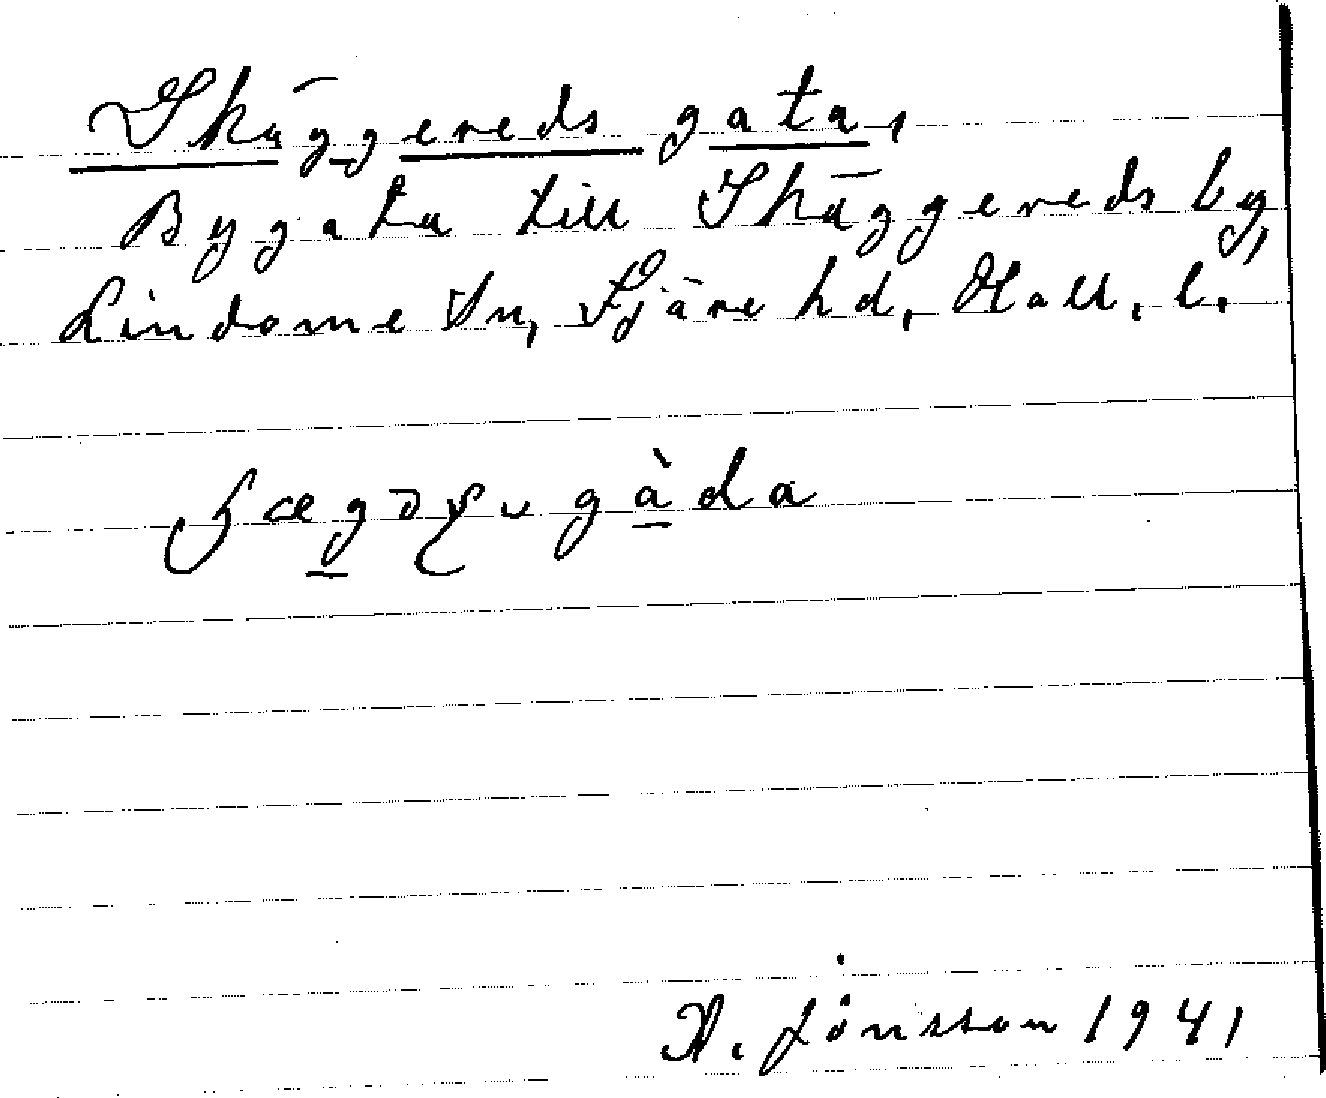 Skäggereds gata,
Bygata till Skäggereds by,
Lindome Sn, Fjäre hd, Hall. l.
A. Jönsson 1941